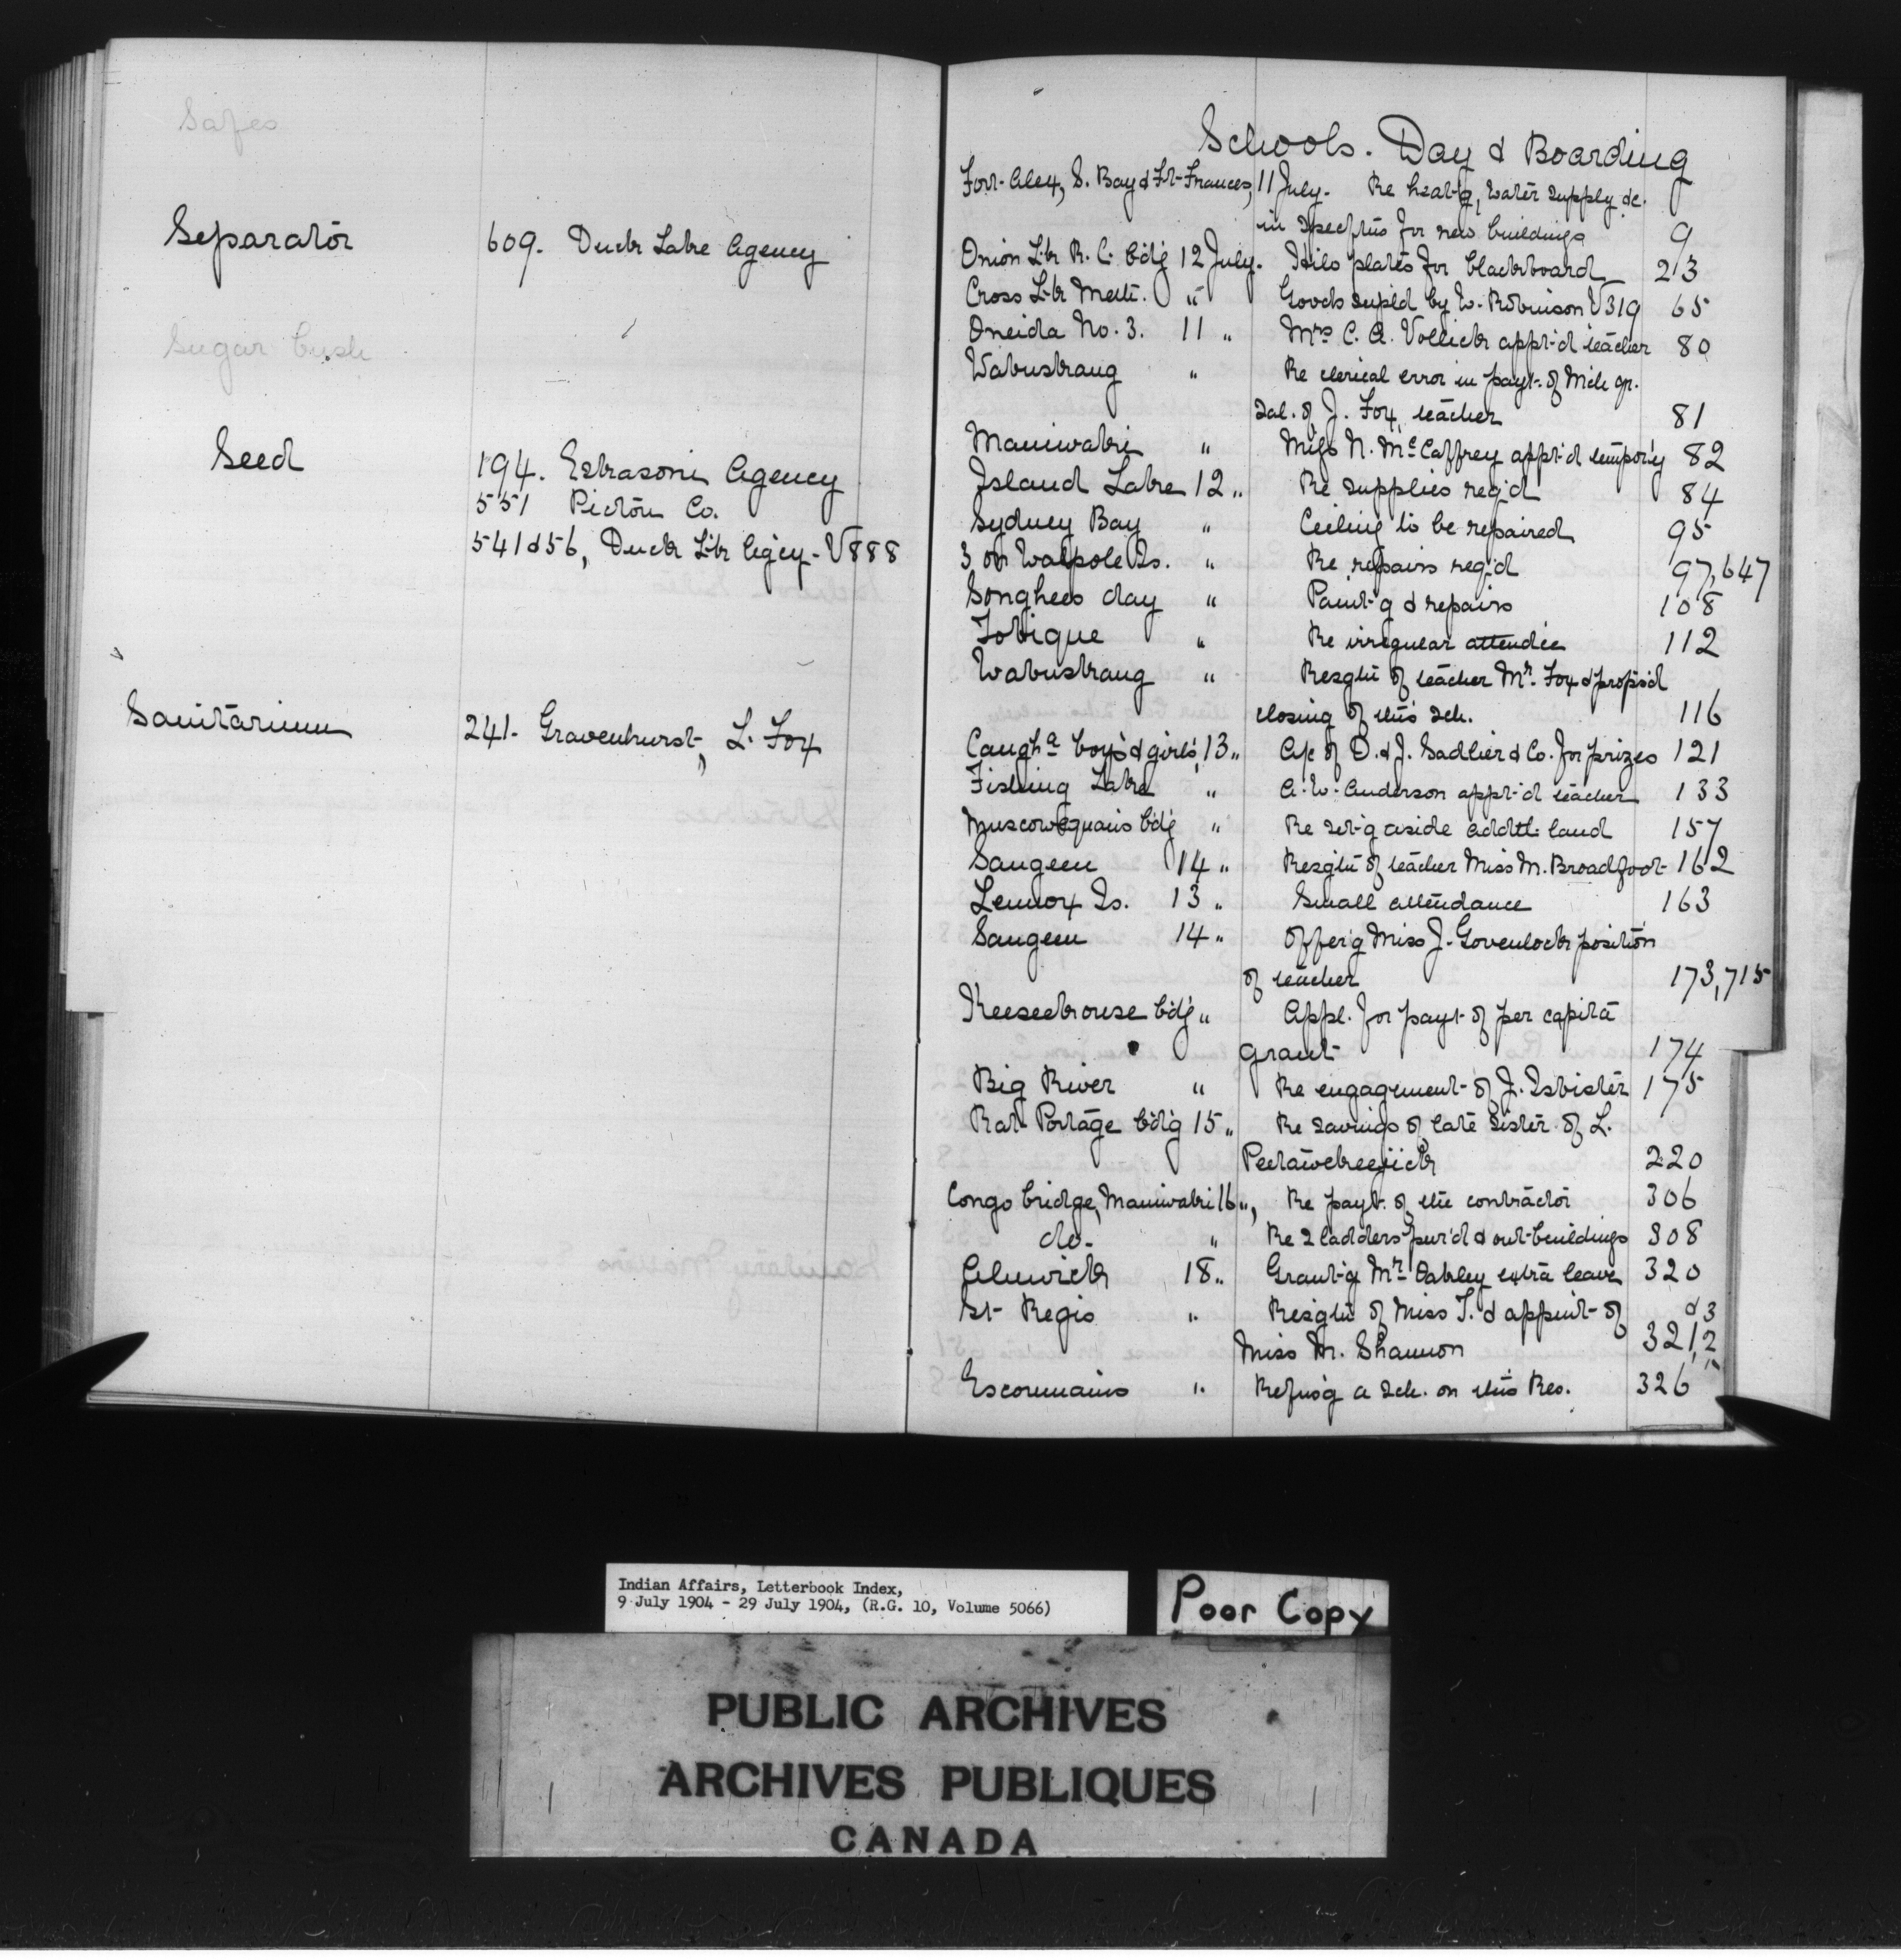 Safes
Separator 609. Duck Lake Agency
Sugar bush
Seed 194. Eskasoni Agency
551 Pictou Co.
541 & 56, Duck Lk Agcy - V888
Sanitarium 241. Gravenhurst, L. Fox
Schools. Day & Boarding
Fort Alex, S. Bay & Ft Frances, 11 July. Re heat-g, water supply &c.
in spectns for new buildings 9
Onion Lk R. C. bdg 12 July. Hilo plates for blackboard 23
Cross Lk Meth. " Goods suppld by W. Robinson V319 65
Oneida No. 3. 11 " Mrs C. A. Vollick appt'd teacher 80
Wabuskang " Re clerical error in payt. of Mch qr.
sal. of J. Fox, teacher 81
Maniwaki " Miss N. McCaffrey appt'd tempor'y 82
Island Lake 12 " Re supplies req'd 84
Sydney Bay " Ceiling to be repaired 95
3 on Walpole Is. " Re repairs req'd 97,647
Songhees day " Paint-g & repairs 108
Tobique " Re irregular attendce 112
Wabuskang " Resgtn of teacher Mr. Fox & propsd
closing of this sch. 116
Caugha boys & girls, 13 " A/c of D. & J. Sadlier & Co. for prizes 121
Fishing Lake " A. W. Anderson appt'd teacher 133
Muscowequans bdg " Re set-g aside addtl. land 157
Saugeen 14 " Resgtn of teacher Miss M. Broadfoot 162
Lennox Is. 13 " Small attendance 163
Saugeen 14 " Offer'g Miss J. Govenlock position
of teacher 173,715
Keeseekouse bdg " Appl. for payt of per capita
grant 174
Big River " Re engagement of J. Isbister 175
Rat Portage bdg 15 " Re savings of late sister of L.
220
Congo bridge, Maniwaki 16 ", Re payt. of the contractor 306
do. " Re 2 ladders pur'd & out-buildings 308
Alnwick 18 " Grant-g Mr. Oakley extra leave 320
St Regis " Resgtn of Miss T. & appmt of & 3
Miss M. Shannon 321,2
Escoumains " Refus'g a sch. on this Res. 326
Indian Affairs, Letterbook Index,
9 July 1904 - 29 July 1904, (R.G. 10, Volume 5066)
Poor Copy
PUBLIC ARCHIVES
ARCHIVES PUBLIQUES
CANADA